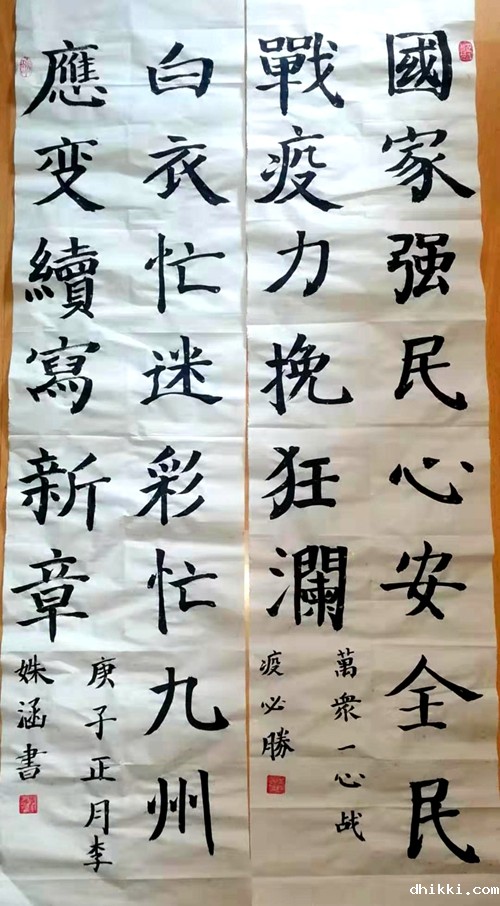 國家强民心安全民
戰疫力挽狂瀾
萬衆一心战
疫必勝
白衣忙迷彩忙九州
應变續寫新章
庚子正月李
姝涵書
dhikki.com